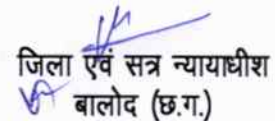 जिला एवं सत्र न्यायाधीश
बालोद (छ.ग.)